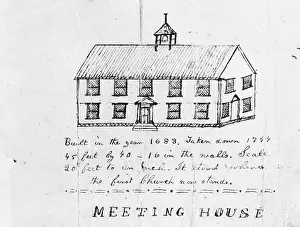 Built in the year 1683, Taken down 1744
45 feet by 40 = 16 in the walls. Scale
20 feet to an inch. It stood where
the first Church now stands.
MEETING HOUSE